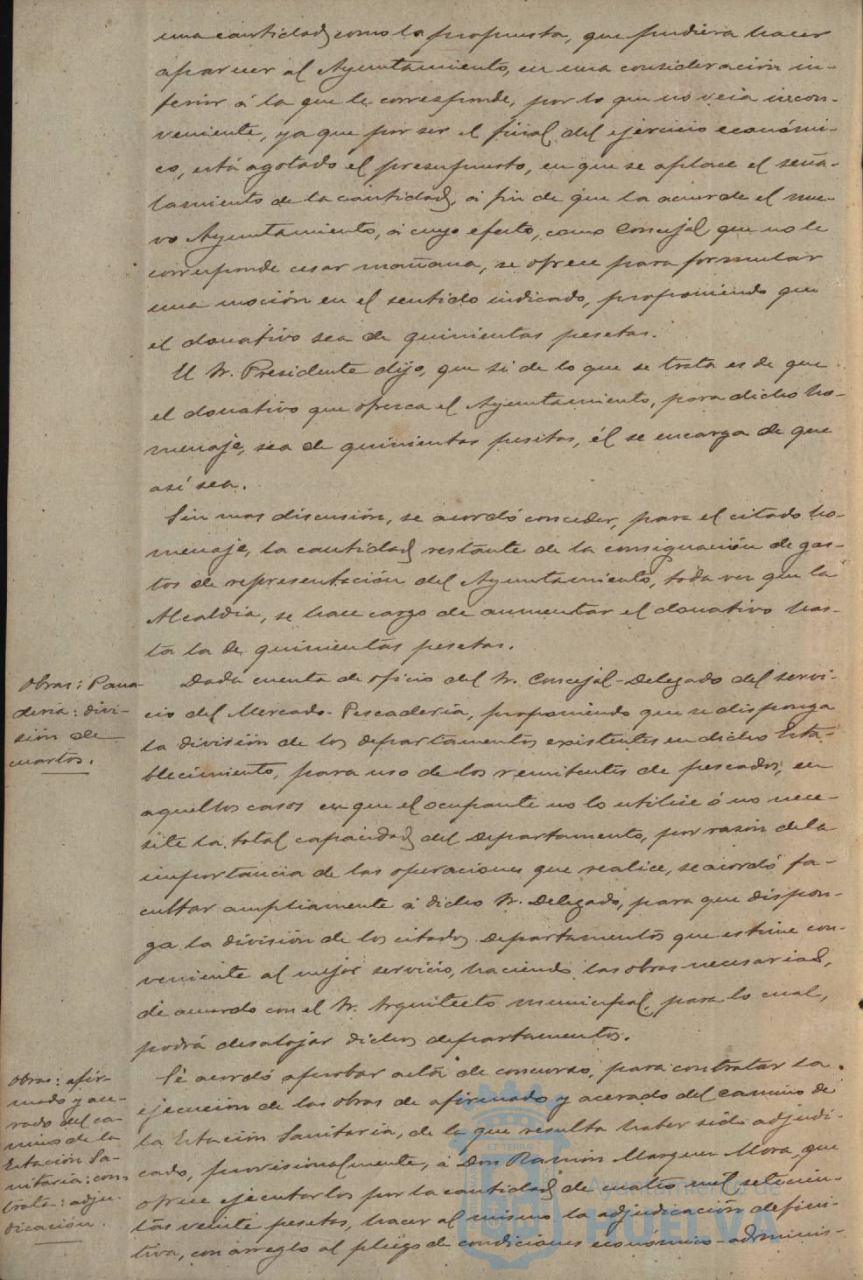 una cantidad como la propuesta, que pudiera hacer
aparecer al Ayuntamiento, en una consideración in-
ferior á la que le corresponde, por lo que no veia incon-
veniente, ya que por ser el final del ejercicio económi-
co, está agotado el presupuesto, en que se aplace el seña-
lamiento de la cantidad, á fin de que la acuerde el nue-
vo Ayuntamiento, á cuyo efecto, como Concejal que no le
corresponde cesar mañana, se ofrece para formular
una moción en el sentido indicado, proponiendo que
el donativo sea de quinientas pesetas.
El Sr. Presidente dijo, que si de lo que se trata es de que
el donativo que ofrezca el Ayuntamiento, para dicho ho-
menaje, sea de quinientas pesetas, él se encarga de que
así sea.
Sin mas discusión, se acordó conceder, para el citado ho-
menaje, la cantidad restante de la consignación de gas-
tos de representación del Ayuntamiento, toda vez que la
Alcaldia, se hace cargo de aumentar el donativo has-
ta la de quinientas pesetas.
Obras: Pana-
deria: divi-
sión de
cuartos.
Dada cuenta de oficio del Sr. Concejal-Delegado del servi-
cio del Mercado-Pescaderia, proponiendo que se disponga
la división de los departamentos existentes en dicho Esta-
blecimiento, para uso de los remitentes de pescados, en
aquellos casos en que el ocupante no lo utilice ó no nece-
site la total capacidad del departamento, por razón de la
importancia de las operaciones que realice, se acordó fa-
cultar ampliamente á dicho Sr. Delegado, para que dispon-
ga la división de los citados departamentos que estime con-
veniente al mejor servicio, haciendo las obras necesarias,
de acuerdo con el Sr. Arquitecto municipal, para lo cual,
podrá desalojar dichos departamentos.
Obras: afir-
mado y ace-
rado del ca-
mino de la
Estación Sa-
nitaria: con-
trata: adju-
dicación.
Se acordó aprobar acta de concurso, para contratar la
ejecución de las obras de afirmado y acerado del camino de
la Estación Sanitaria, de la que resulta haber sido adjudi-
cado, provisionalmente, á Don Ramón Marquez Mora, que
ofrece ejecutarlos por la cantidad de cuatro mil setecien-
tas veinte pesetas, hacer al mismo la adjudicación defini-
tiva, con arreglo al pliego de condiciones económico-adminis-
Ayuntamiento de
HUELVA